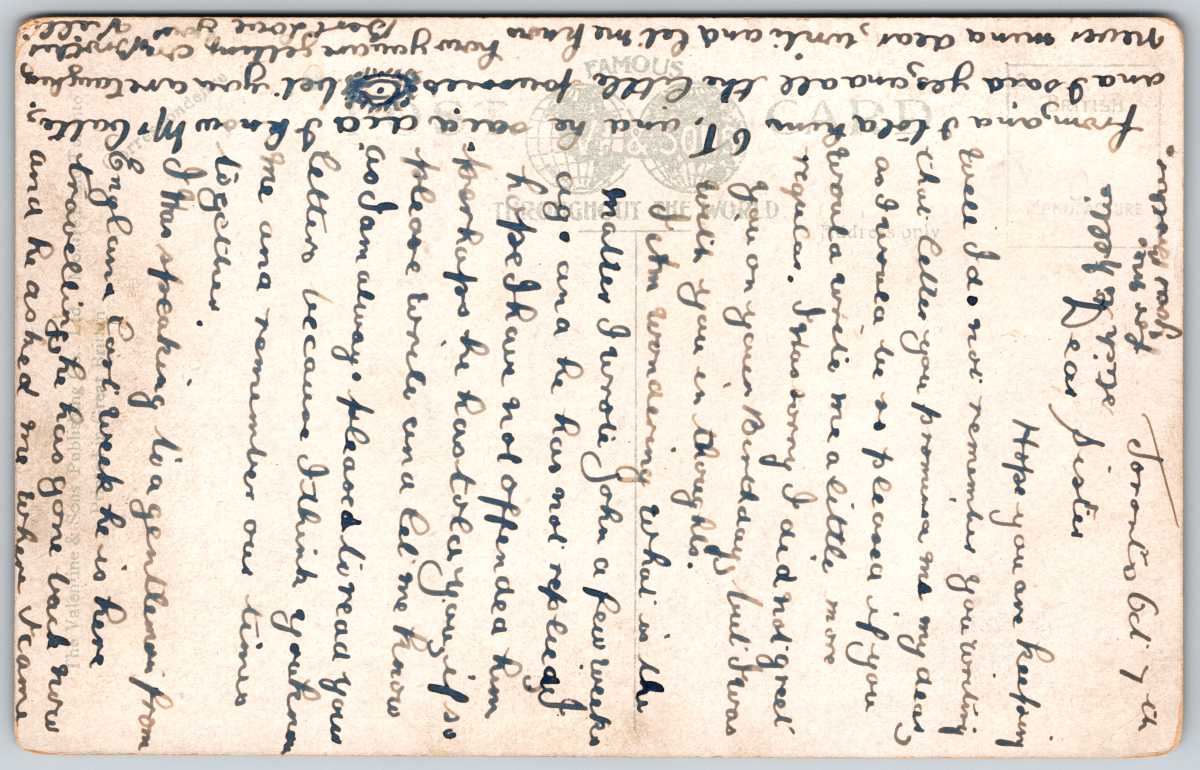 Toronto Od 7 th
Dear Sister
Hope you are keeping
well I do not remember you writing
that letter you promised me my dear
as I would be so pleased if you
would write me a little more
regular. I was sorry I did not greet
you on your Birthday, but I was
with you in thoughts.
I am wondering what is the
matter I wrote John a few weeks
ago and he has not replied I
hope I have not offended him
perhaps he has told you, if so
please write and let me know
as I am always pleased to read your
letters because I think you know
me and remember our times
together.
I was speaking to a gentleman from
England last week he is here
travelling, he has gone back now
and he asked me where I came
from, and I told him GT, and he said did I know Mr
and I said yes, and all the little bet you are laughing
never mind dear, write and let me know how you are getting on, Brother
Best love
FAMOUS
THROUGHOUT THE WORLD
CARD
Address only
The Valentine & Sons Publishing